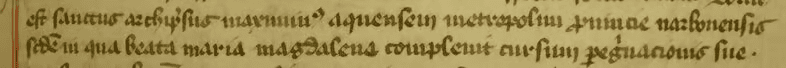 est sanctus archip̄sus maximin⁹ aquensem metropolim ꝓuincie narbonensis
sedem in qua beata maria magdalena compleuit cursum peg̃nacionis sue.